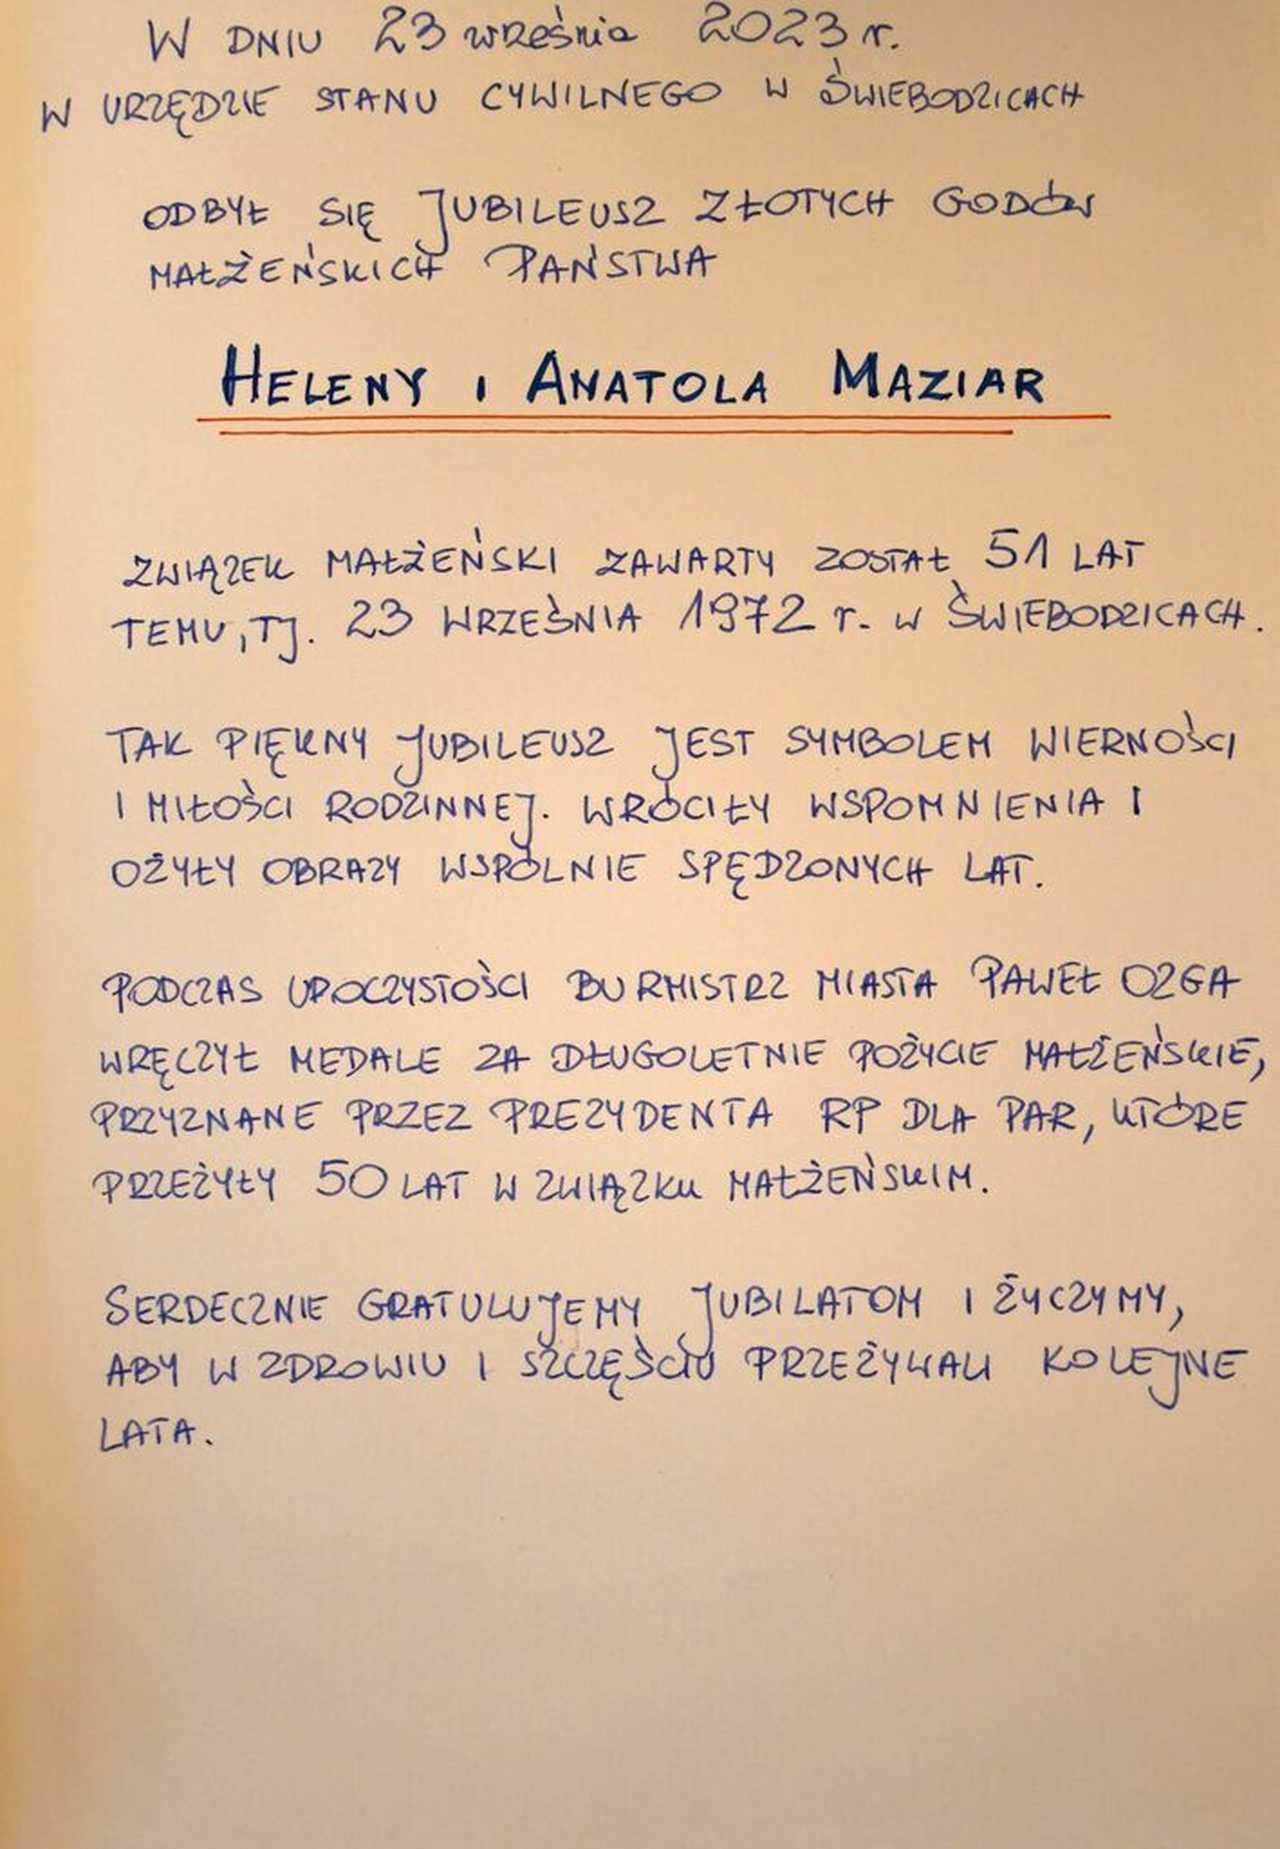 W DNIU 23 września 2023 r.
W URZĘDZIE STANU CYWILNEGO W ŚWIEBODZICACH
ODBYŁ SIĘ JUBILEUSZ ZŁOTYCH GODÓW
MAŁŻEŃSKICH PAŃSTWA
HELENY I ANATOLA MAZIAR
ZWIĄZEK MAŁŻEŃSKI ZAWARTY ZOSTAŁ 51 LAT
TEMU, TJ. 23 WRZEŚNIA 1972 r. W ŚWIEBODZICACH.
TAK PIĘKNY JUBILEUSZ JEST SYMBOLEM WIERNOŚCI
I MIŁOŚCI RODZINNEJ. WRÓCIŁY WSPOMNIENIA I
OŻYŁY OBRAZY WSPÓLNIE SPĘDZONYCH LAT.
PODCZAS UROCZYSTOŚCI BURMISTRZ MIASTA PAWEŁ OZGA
WRĘCZYŁ MEDALE ZA DŁUGOLETNIE POŻYCIE MAŁŻEŃSKIE,
PRZYZNANE PRZEZ PREZYDENTA RP DLA PAR, KTÓRE
PRZEŻYŁY 50 LAT W ZWIĄZKU MAŁŻEŃSKIM.
SERDECZNIE GRATULUJEMY JUBILATOM I ŻYCZYMY,
ABY W ZDROWIU I SZCZĘŚCIU PRZEŻYWALI KOLEJNE
LATA.